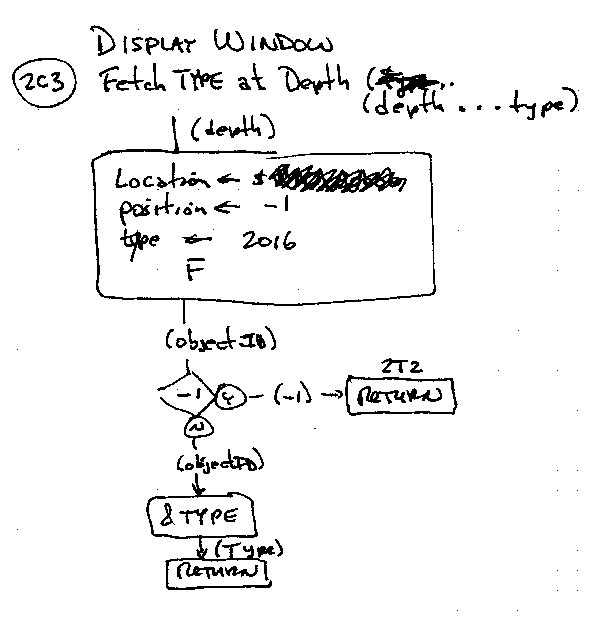 DISPLAY WINDOW
2C3 Fetch TYPE at Depth
(depth ... type)
(depth)
Location ← $
position ← -1
type ← 2016
F
(objectID)
2T2
-1 Y - (-1) → RETURN
N
(objectID)
& TYPE
(Type)
RETURN